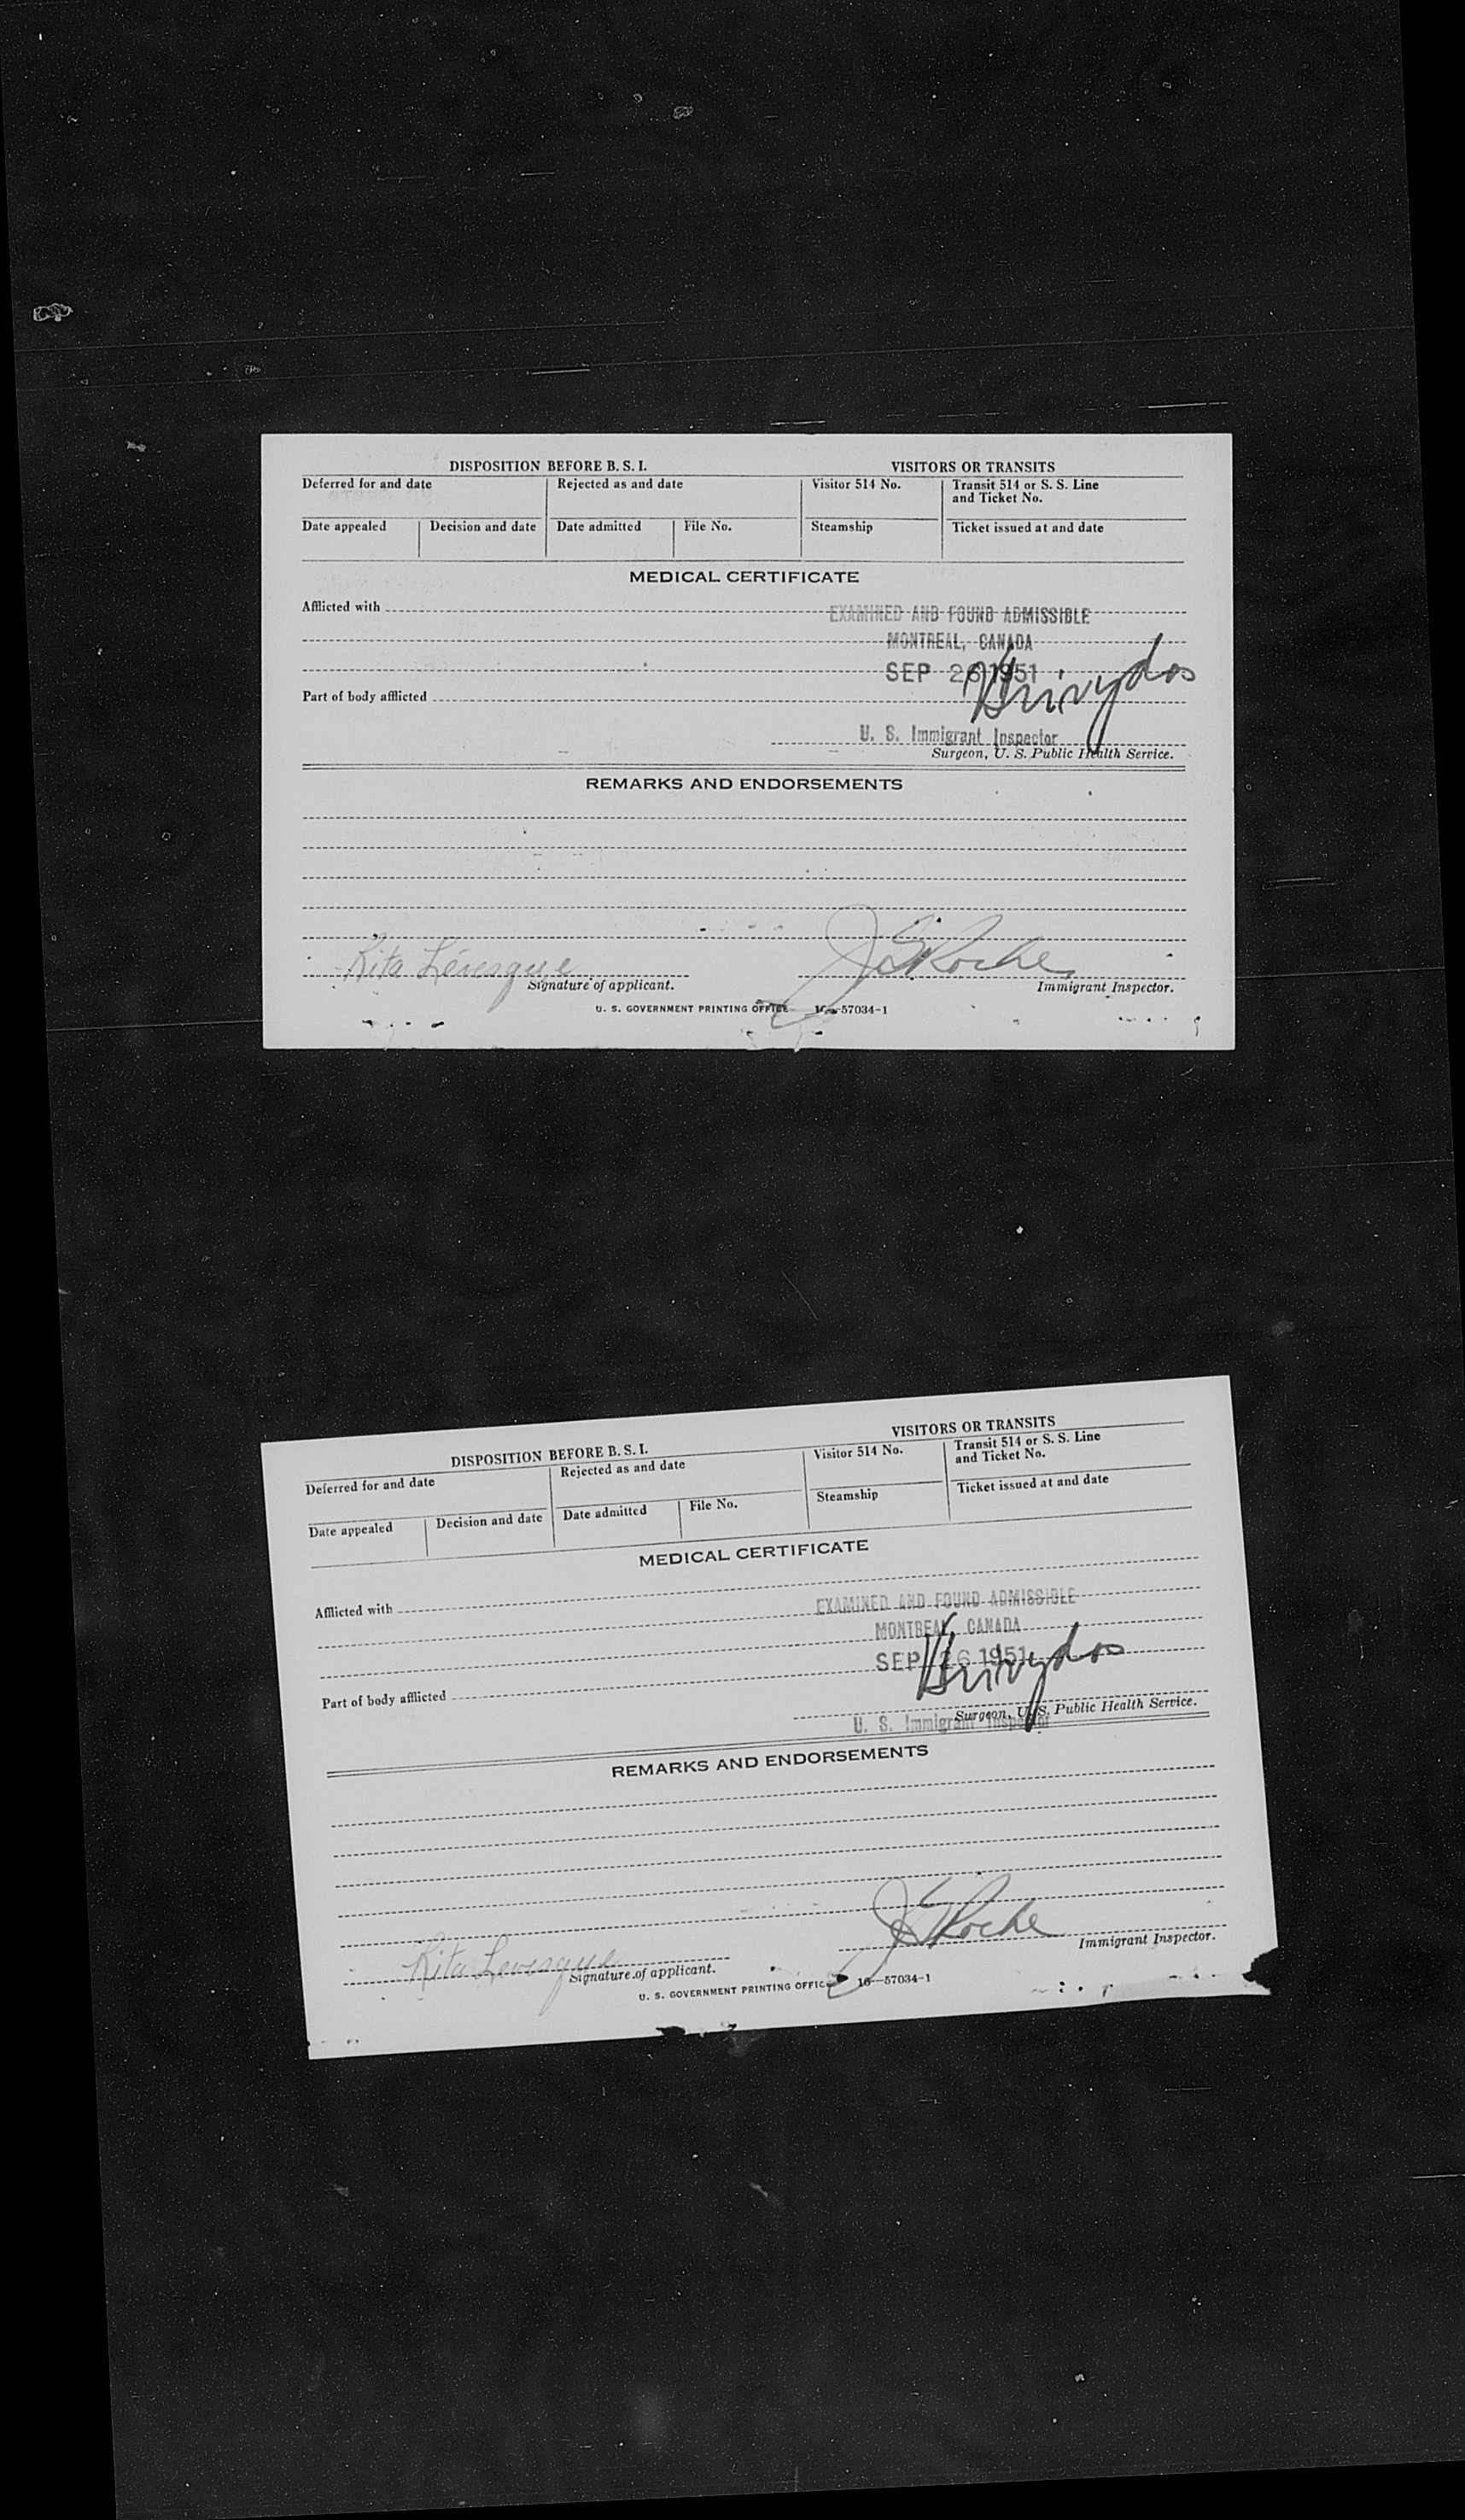 DISPOSITION BEFORE B. S. I. VISITORS OR TRANSITS
Deferred for and date Rejected as and date Visitor 514 No. Transit 514 or S. S. Line and Ticket No.
Date appealed Decision and date Date admitted File No. Steamship Ticket issued at and date
MEDICAL CERTIFICATE
Afflicted with
EXAMINED AND FOUND ADMISSIBLE
MONTREAL, CANADA
SEP 26 1951
Part of body afflicted
U. S. Immigrant Inspector
Surgeon, U. S. Public Health Service.
REMARKS AND ENDORSEMENTS
Rita Lévesque J Roche
Signature of applicant. Immigrant Inspector.
U. S. GOVERNMENT PRINTING OFFICE 16—57034-1
DISPOSITION BEFORE B. S. I. VISITORS OR TRANSITS
Deferred for and date Rejected as and date Visitor 514 No. Transit 514 or S. S. Line and Ticket No.
Date appealed Decision and date Date admitted File No. Steamship Ticket issued at and date
MEDICAL CERTIFICATE
Afflicted with
EXAMINED AND FOUND ADMISSIBLE
MONTREAL, CANADA
SEP 26 1951
Part of body afflicted
Surgeon, U. S. Public Health Service.
U. S. Immigrant Inspector
REMARKS AND ENDORSEMENTS
Rita Levesque J Roche
Signature of applicant. Immigrant Inspector.
U. S. GOVERNMENT PRINTING OFFICE 16—57034-1